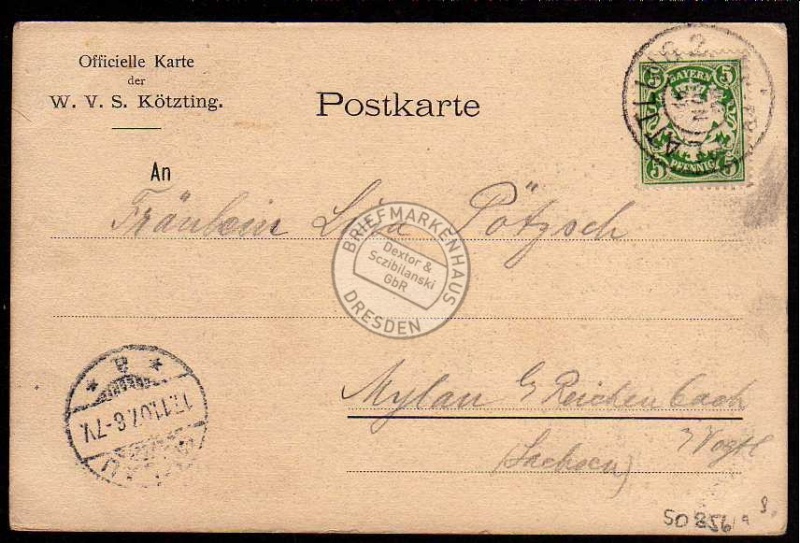 Officielle Karte
der
W. V. S. Kötzting.
Postkarte
BAYERN
5 5
5 5
PFENNIG
An
Fräulein Lina Pötzsch
BRIEFMARKENHAUS
Dextor &
Sczibilanski
GbR
DRESDEN
Mylau b/ Reichenbach
i/ Vogtl
(Sachsen)
17.11.07. 6-7V.
MYLAU
SO 856